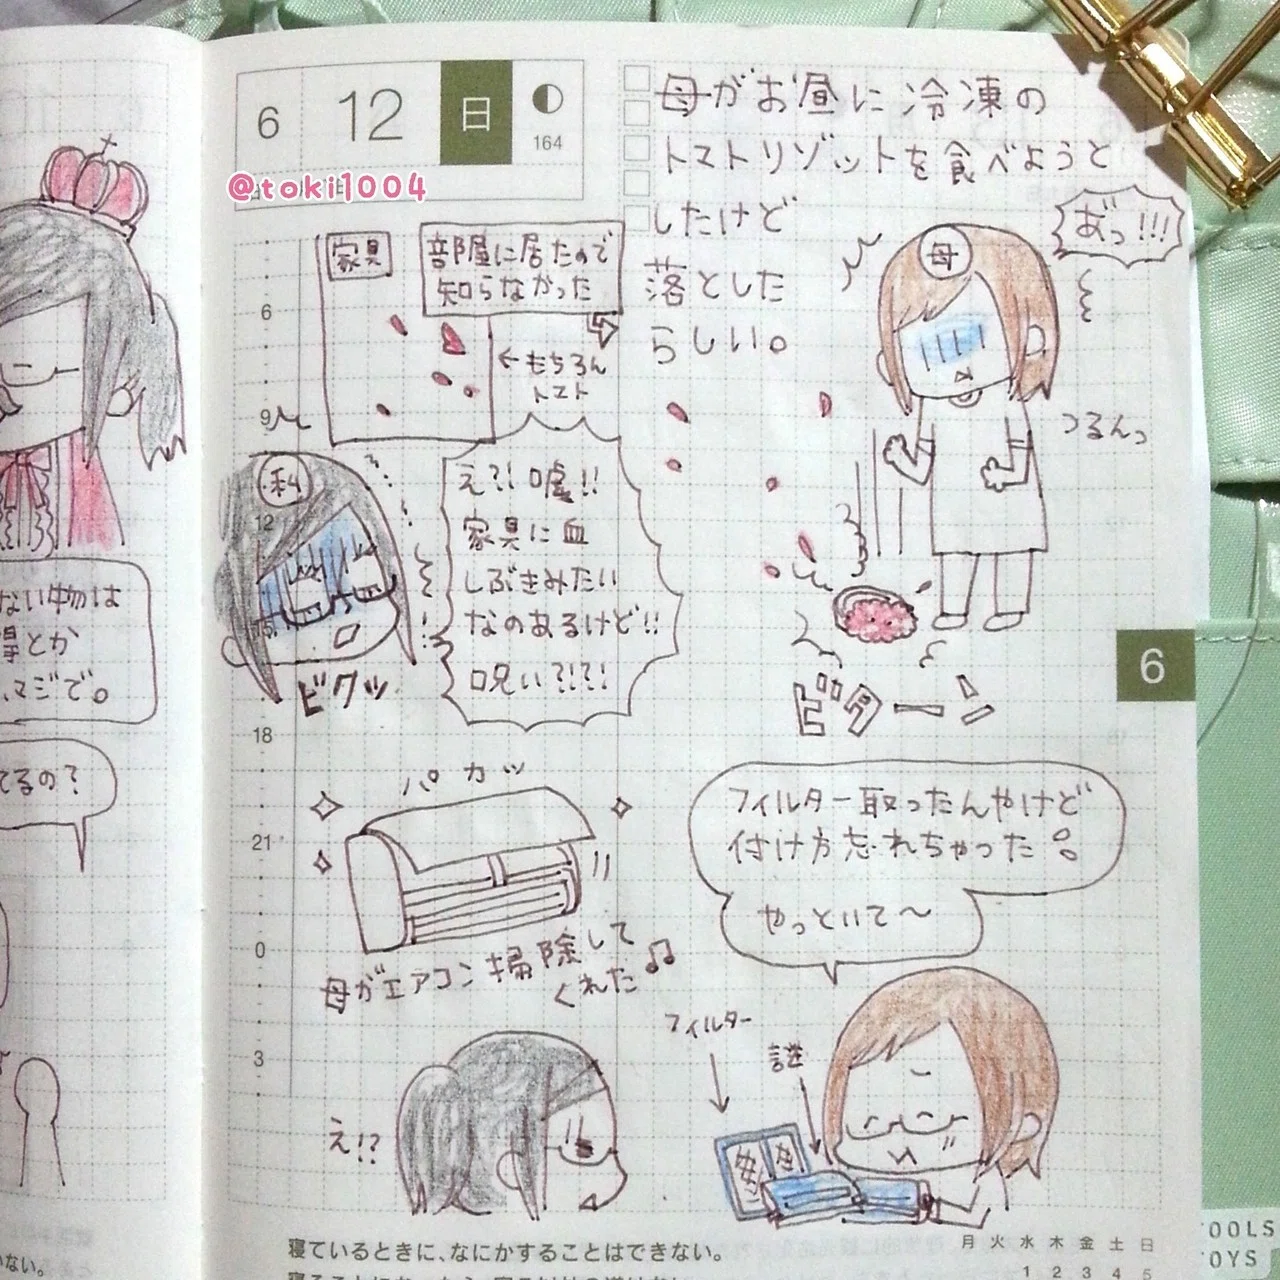 6 12 日
164
@toki1004
母がお昼に冷凍の
トマトリゾットを食べようと
したけど
落とした
らしい。
あ゛っ!!!
母
つるんっ
ビターン
家具
部屋に居たので
知らなかった
←もちろん
トマト
私
え?!嘘!!
家具に血
しぶきみたい
なのあるけど!!
呪い?!?!
ビクッ
パカッ
母がエアコン掃除して
くれた♫
フィルター取ったんやけど
付け方忘れちゃった。
やっといて〜
フィルター
謎
え!?
6
9
12
15
18
21
0
3
6
ない物は
得とか
マジで。
てるの?
ない。
寝ているときに、なにかすることはできない。
月 火 水 木 金 土 日
1 2 3 4 5
TOOLS
TOYS